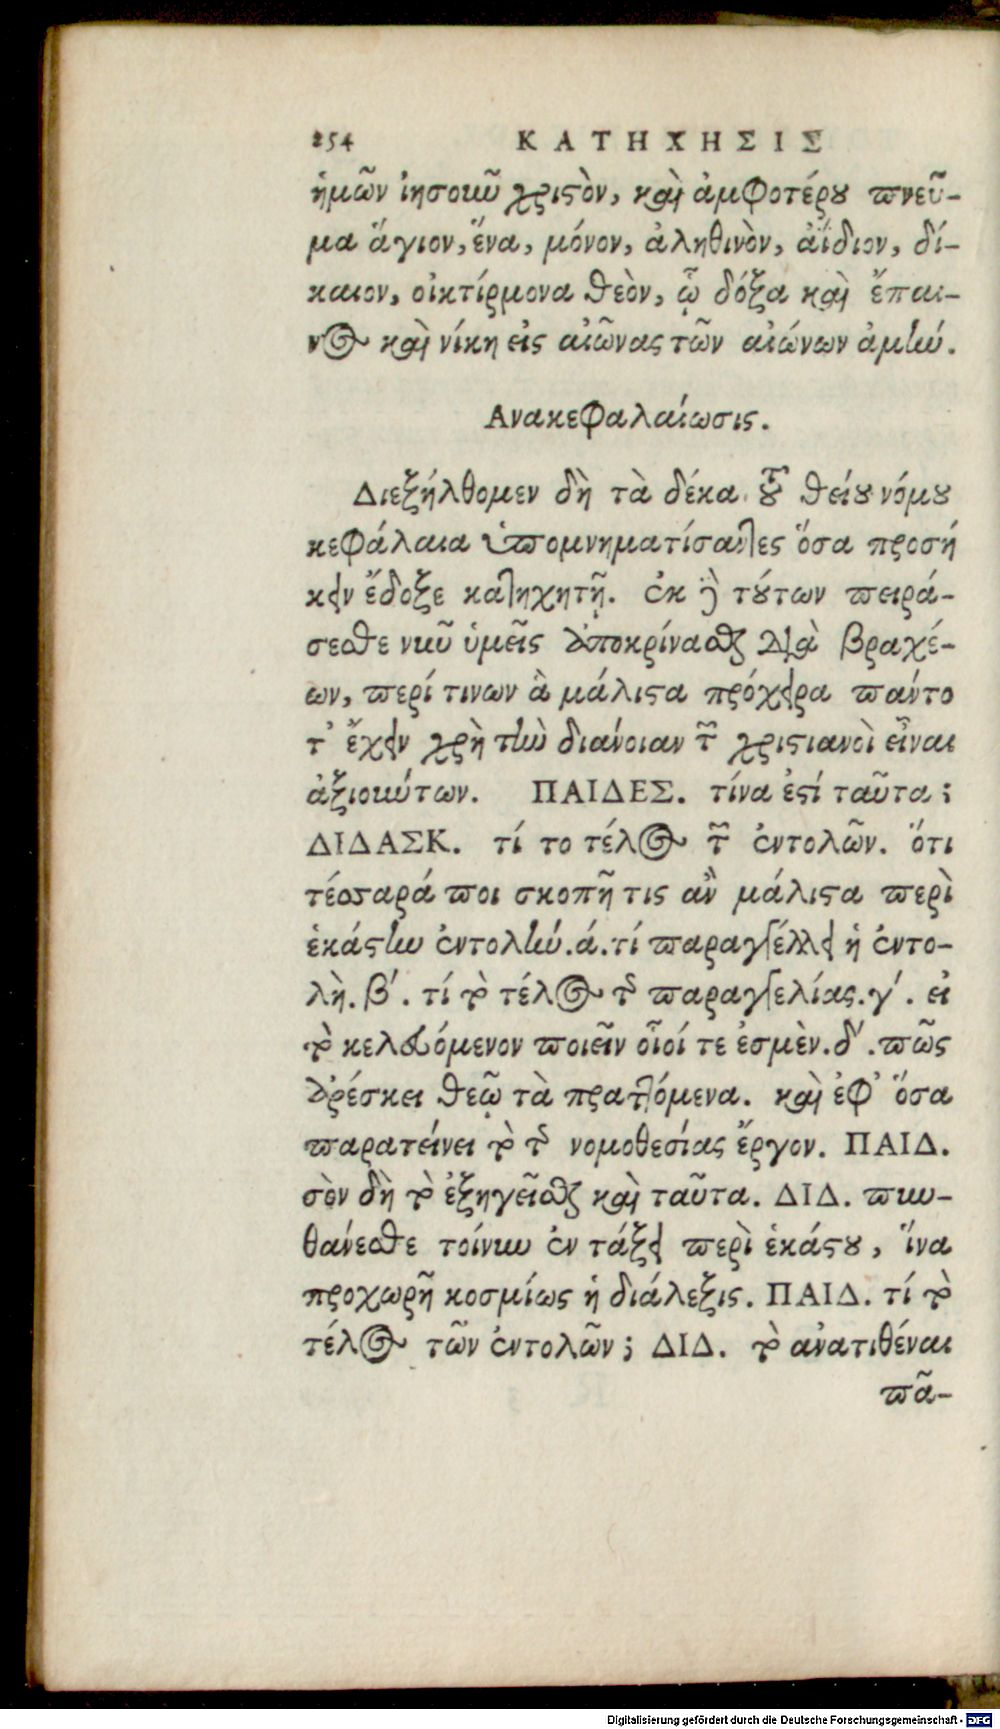 254 ΚΑΤΗΧΗΣΙΣ
ἡμῶν ἰησοιῶ χριστὸν, καὶ ἀμφοτέρου πνεῦ-
μα ἅγιον, ἕνα, μόνον, ἀληθινὸν, ἀΐδιον, δί-
καιον, οἰκτίρμονα θεὸν, ᾧ δόξα καὶ ἔπαι-
νος καὶ νίκη εἰς αἰῶνας τῶν αἰώνων ἀμήν.
Ανακεφαλαίωσις.
Διεξήλθομεν δὴ τὰ δέκα τοῦ θείου νόμου
κεφάλαια ὑπομνηματίσαντες ὅσα προσή
κειν ἔδοξε κατηχητῇ. ἐκ δὲ τούτων πειρά-
σεσθε νιῦ ὑμεῖς ἀποκρίνασθαι διὰ βραχέ-
ων, περί τινων ἃ μάλιστα πρόχειρα πάντο
τ' ἔχειν χρὴ τὴν διάνοιαν τῶν χριστιανοὶ εἶναι
ἀξιοιύτων. ΠΑΙΔΕΣ. τίνα ἐστί ταῦτα;
ΔΙΔΑΣΚ. τί το τέλος τῶν ἐντολῶν. ὅτι
τέσσαρά ποι σκοπῇ τις ἂν μάλιστα περὶ
ἑκάστην ἐντολήν. ά. τί παραγγέλλει ἡ ἐντο-
λὴ. β'. τί τὸ τέλος τῆς παραγγελίας. γ'. εἰ
τὸ κελευόμενον ποιεῖν οἷοί τε ἐσμὲν. δ'. πῶς
ἀρέσκει θεῷ τὰ πραττόμενα. καὶ ἐφ' ὅσα
παρατείνει τὸ τῆς νομοθεσίας ἔργον. ΠΑΙΔ.
σὸν δὴ τὸ ἐξηγεῖσθαι καὶ ταῦτα. ΔΙΔ. πυν-
θάνεσθε τοίνυν ἐν τάξει περὶ ἑκάστου, ἵνα
προχωρῇ κοσμίως ἡ διάλεξις. ΠΑΙΔ. τί τὸ
τέλος τῶν ἐντολῶν; ΔΙΔ. τὸ ἀνατιθέναι
πᾶ-
Digitalisierung gefördert durch die Deutsche Forschungsgemeinschaft - DFG